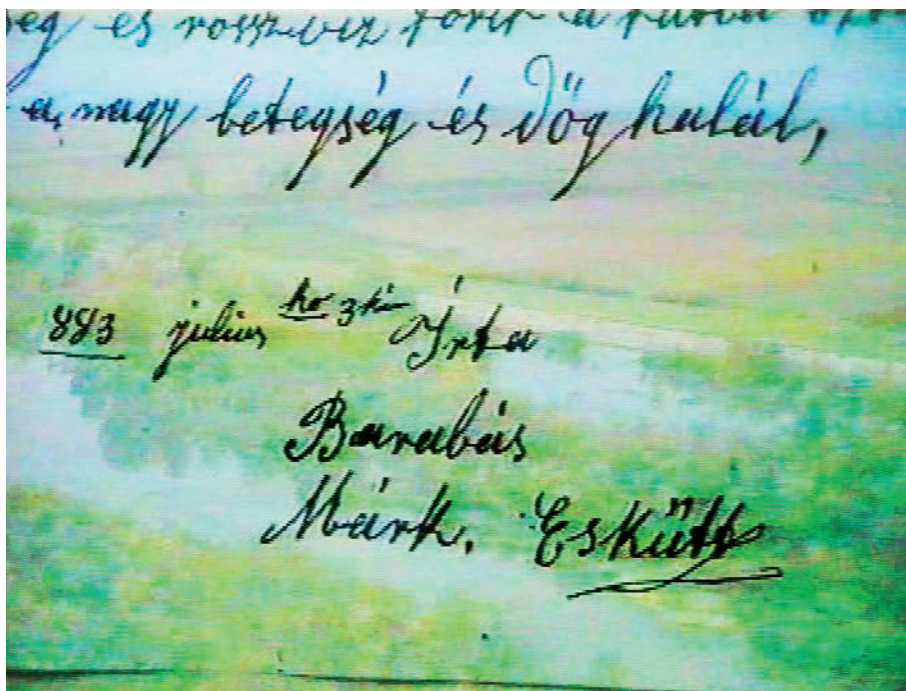 és rossz víz
a, nagy betegség és dög halál,
883 julius ho 3ki Írta
Barabás
Márk. Eskütt